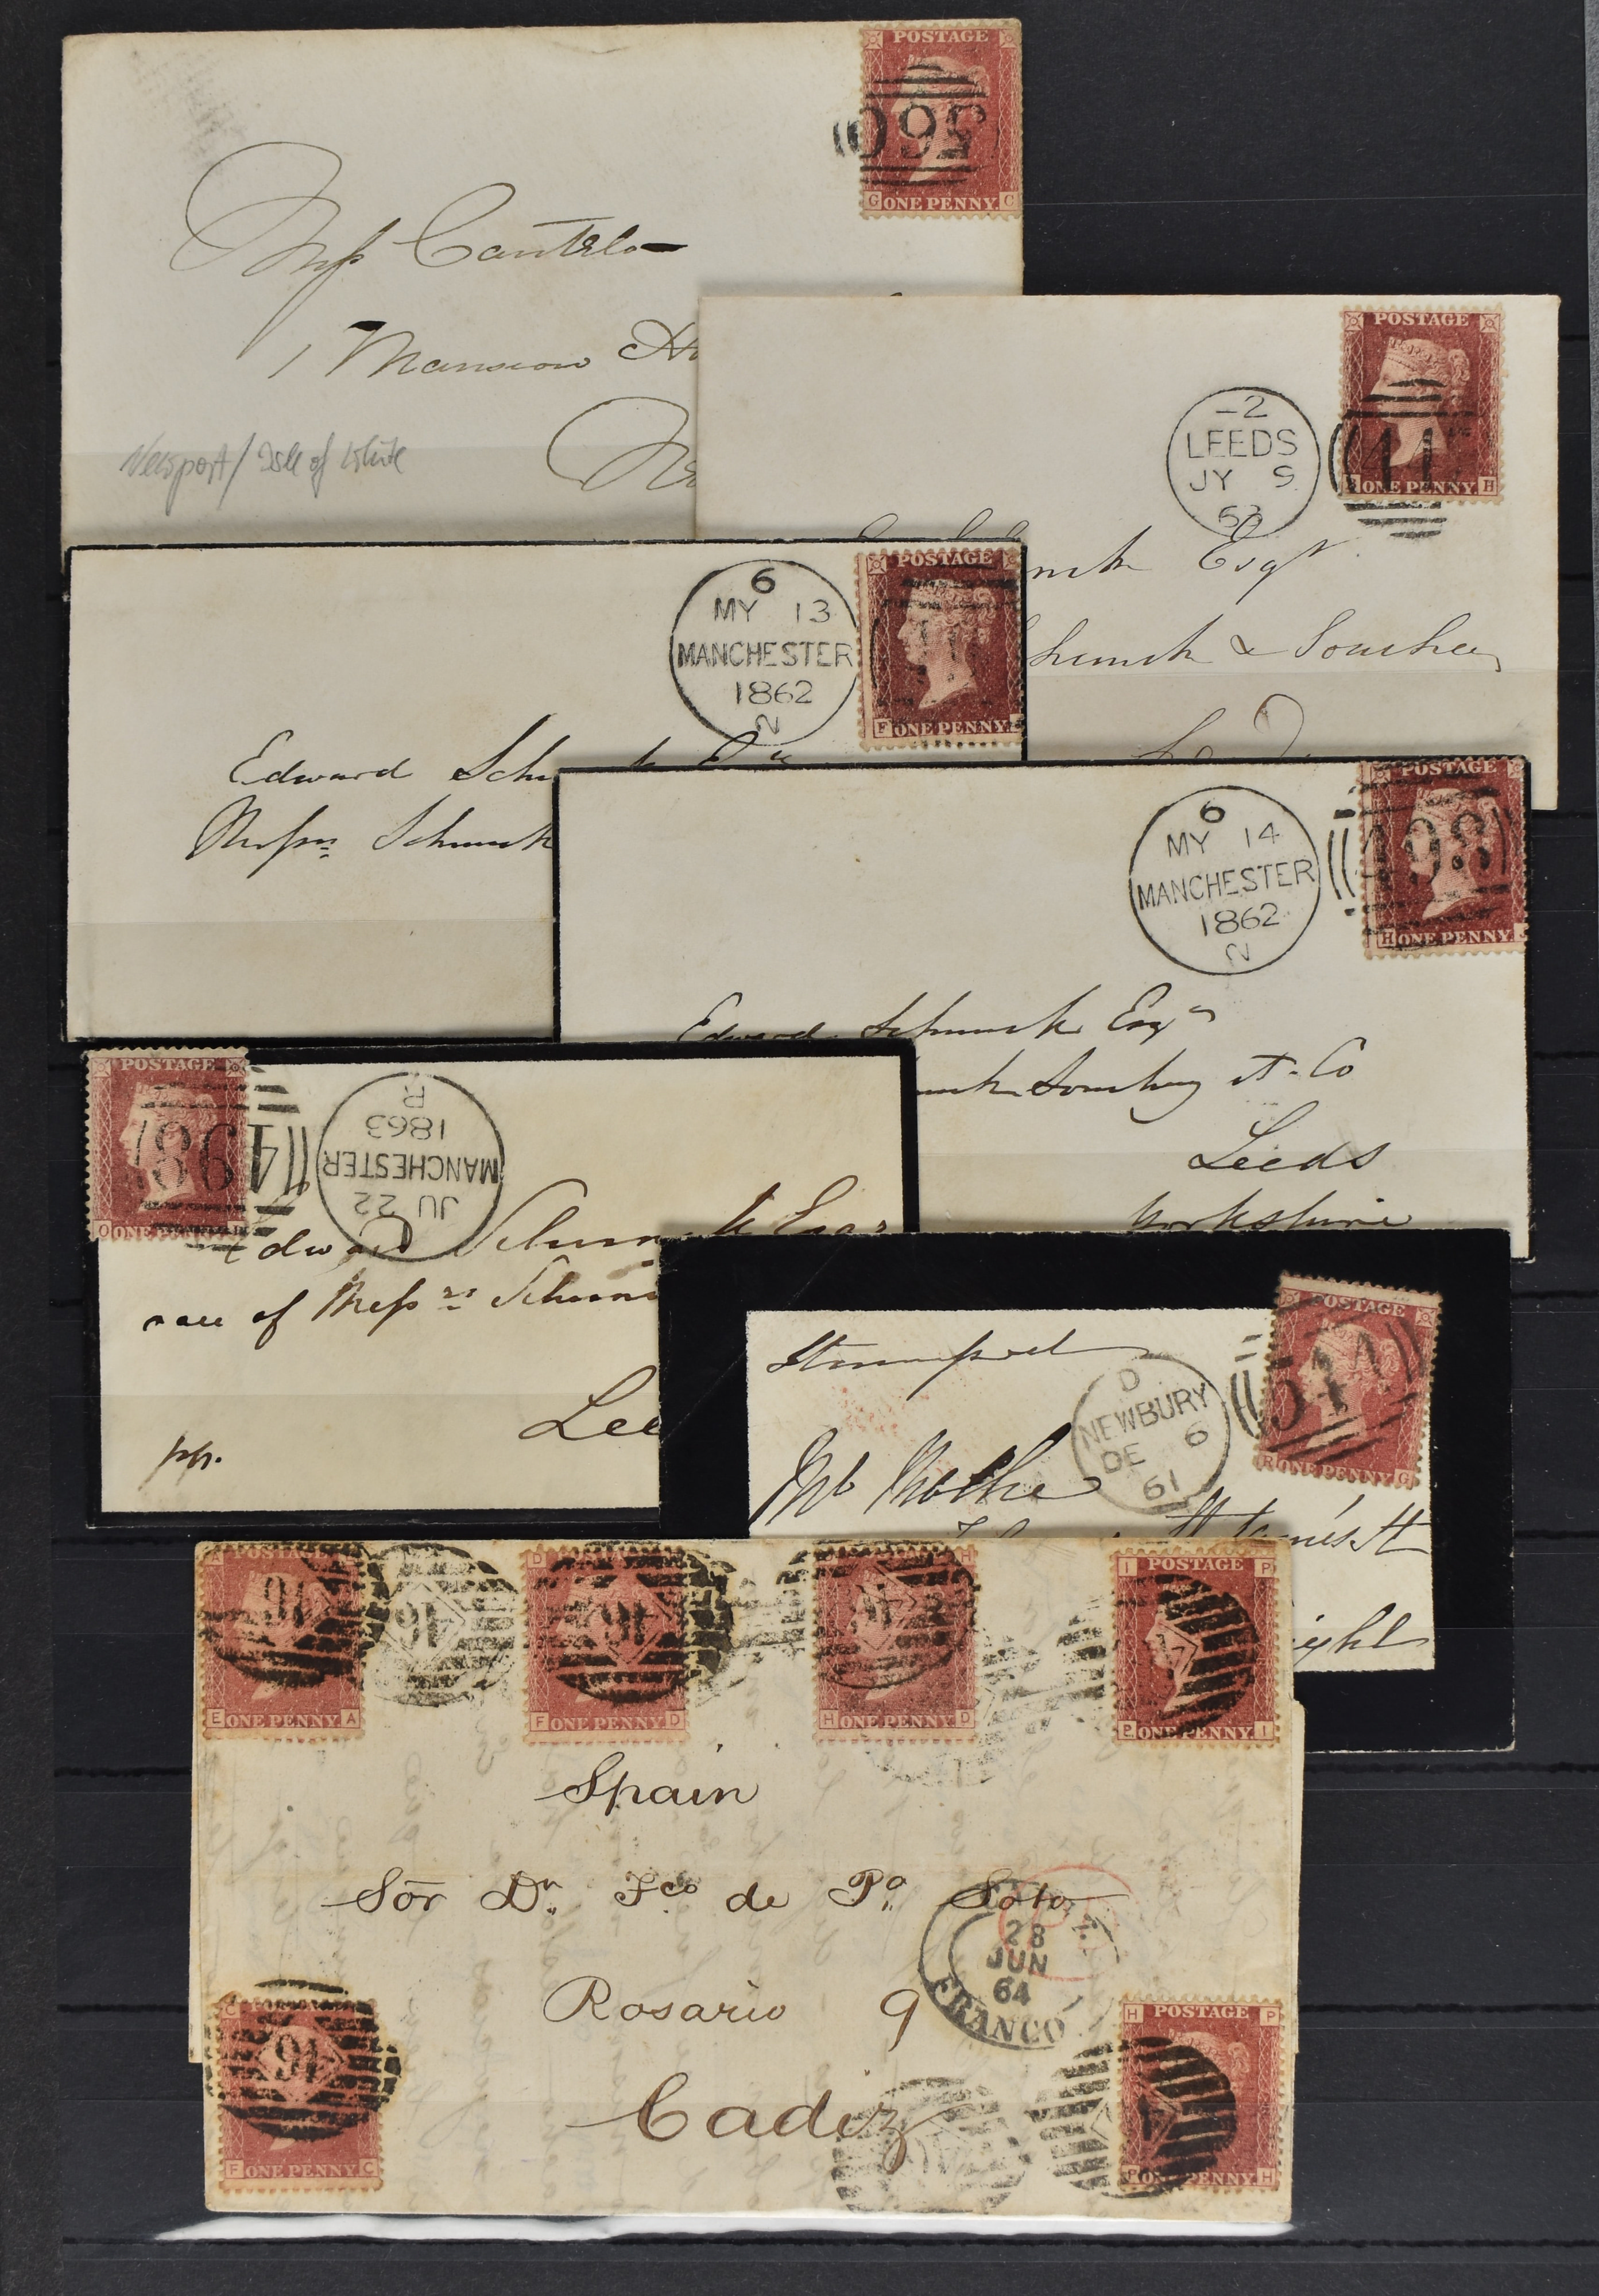 POSTAGE
560
G ONE PENNY. C
Miss Cantelo
1 Mansion
Newport/Isle of White
POSTAGE
-2
LEEDS
JY 9
63
ONE PENNY. H
Esqr
Schunck & Souchay
6
MY 13
MANCHESTER
1862
2
POSTAGE
F ONE PENNY
Edward
Messrs Schunck
6
MY 14
MANCHESTER
1862
2
POSTAGE
498
H ONE PENNY. J
Edward Schunck Esqre
Souchay & Co
Leeds
Yorkshire
POSTAGE
498
O ONE PENNY
JU 22
MANCHESTER
1863
R
Edward Schunck Esqr
care of Messrs
pp.
Stamped
D
NEWBURY
DE 6
61
POSTAGE
544
R ONE PENNY G
St James's St
A POSTAGE
16
E ONE PENNY A
16
D
16
F ONE PENNY D
H
16
H ONE PENNY D
I POSTAGE P
P ONE PENNY. I
Spain
Sōr Dn. Fco. de Pa. Soto
28
JUN
64
FRANCO
Rosario 9
Cadiz
C
16
F ONE PENNY C
H POSTAGE P
P ONE PENNY. H